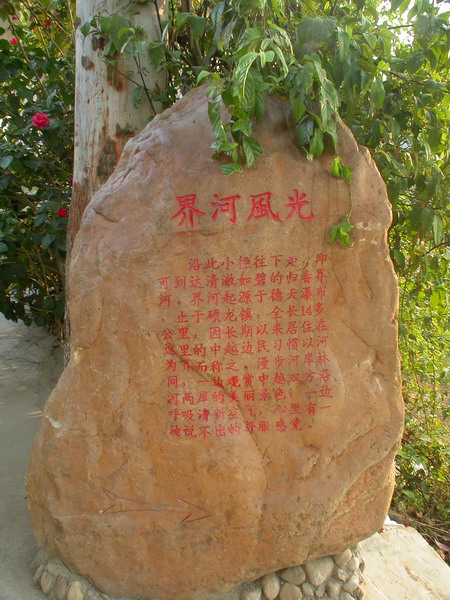 界河風光
沿此小径往下走即
可到达清澈如碧的归春界
河。界河起源于德天瀑布
止于硕龙镇，全长14多
公里，因长期以来居住在
这里的中越边民习惯以河
为界而称之。漫步河岸林
间，一边观赏中越双方沿
河两岸的美丽景色，一边
呼吸清新空气，心里有一
种说不出的舒服感觉。